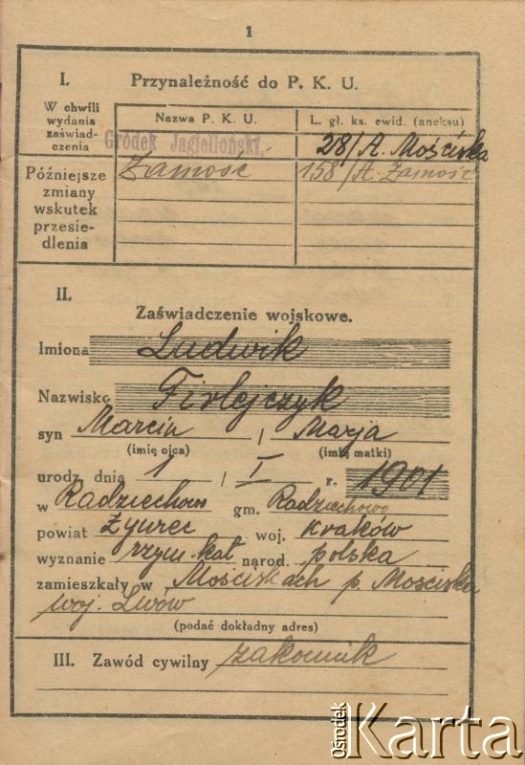 1
I. Przynależność do P. K. U.
W chwili wydania zaświadczenia
Nazwa P. K. U.
L. gł. ks. ewid. (aneksu)
Gródek Jagielloński
28/A. Mościska
Późniejsze zmiany wskutek przesiedlenia
Zamość
158/A. Zamość
II.
Zaświadczenie wojskowe.
Imiona Ludwik
Nazwisko Firlejczyk
syn Marcin i Marja
(imię ojca) (imię matki)
urodz. dnia 1 / I r. 1901
w Radziechow gm. Radziechowo
powiat Żywiec woj. Kraków
wyznanie rzym. kat narod. polska
zamieszkały w Mościskach p. Mosciska
woj. Lwów
(podać dokładny adres)
III. Zawód cywilny zakonnik
Ośrodek Karta